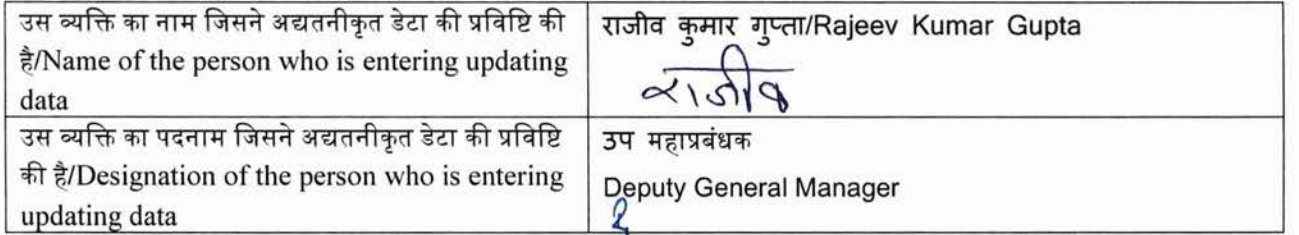 उस व्यक्ति का नाम जिसने अद्यतनीकृत डेटा की प्रविष्टि की
है/Name of the person who is entering updating
data
राजीव कुमार गुप्ता/Rajeev Kumar Gupta
राजीव
उस व्यक्ति का पदनाम जिसने अद्यतनीकृत डेटा की प्रविष्टि
की है/Designation of the person who is entering
updating data
उप महाप्रबंधक
Deputy General Manager